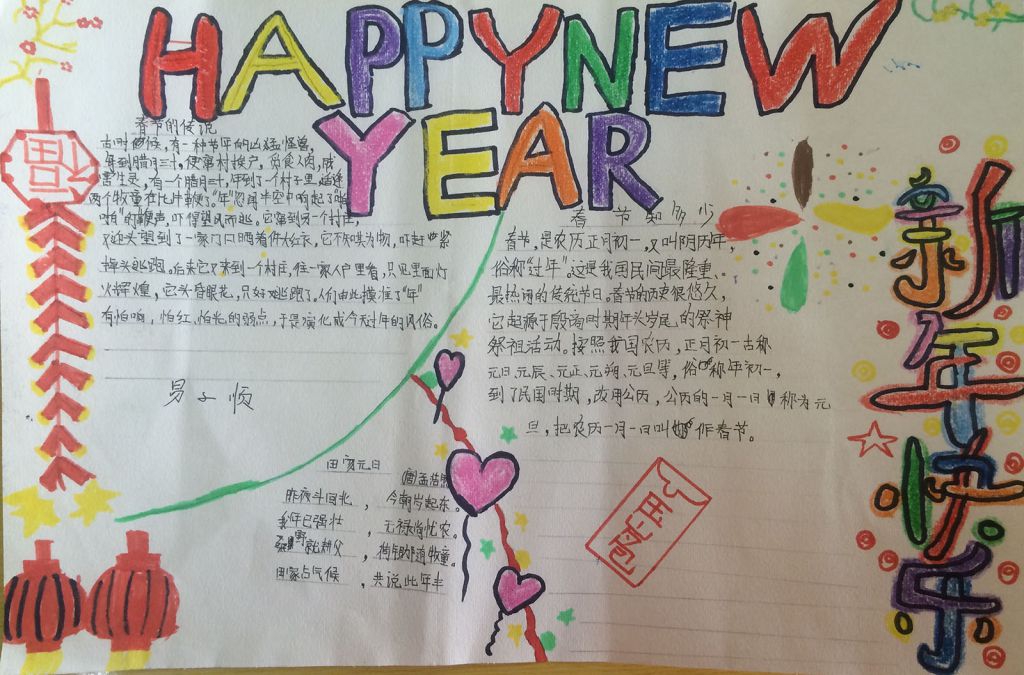 HAPPY NEW
YEAR
福
春节的传说
古时候,有一种节年的凶猛怪兽,
每到腊月三十,便窜村挨户,觅食人肉,残
害生灵,有一个腊月三十,年到了一个村子里,适逢
两个牧童在比
"年"忽闻半空中响起了"啪
啪"的鞭声,吓得望风而逃,它窜到另一个村庄,
又迎头望到了一家门口晒着件大红衣,它不知其为物,吓赶紧
掉头逃跑。后来它又来到一个村庄,往一家人户里看,只见里面灯
火辉煌,它头昏眼花,只好逃跑了。人们由此摸准了"年"
有怕响,怕红,怕光的弱点,于是演化成今天过年的风俗。
易子顺
春节知多少
春节,是农历正月初一,又叫阴历年,
俗称"过年"。这是我国民间最隆重、
最热闹的传统节日。春节的历史很悠久,
它起源于殷商时期年头岁尾的祭神
祭祖活动。按照我国农历,正月初一古称
元日、元辰、元正、元朔、元旦等,俗称年初一,
到了民国时期,改用公历,公历的一月一日称为元
旦,把农历一月一日叫作春节。
田家元日
(唐)孟浩然
昨夜斗回北,今朝岁起东。
年已强壮,无禄尚忧农。
野就耕父,荷锄随牧童。
田家占气候,共说此年丰
新年快乐